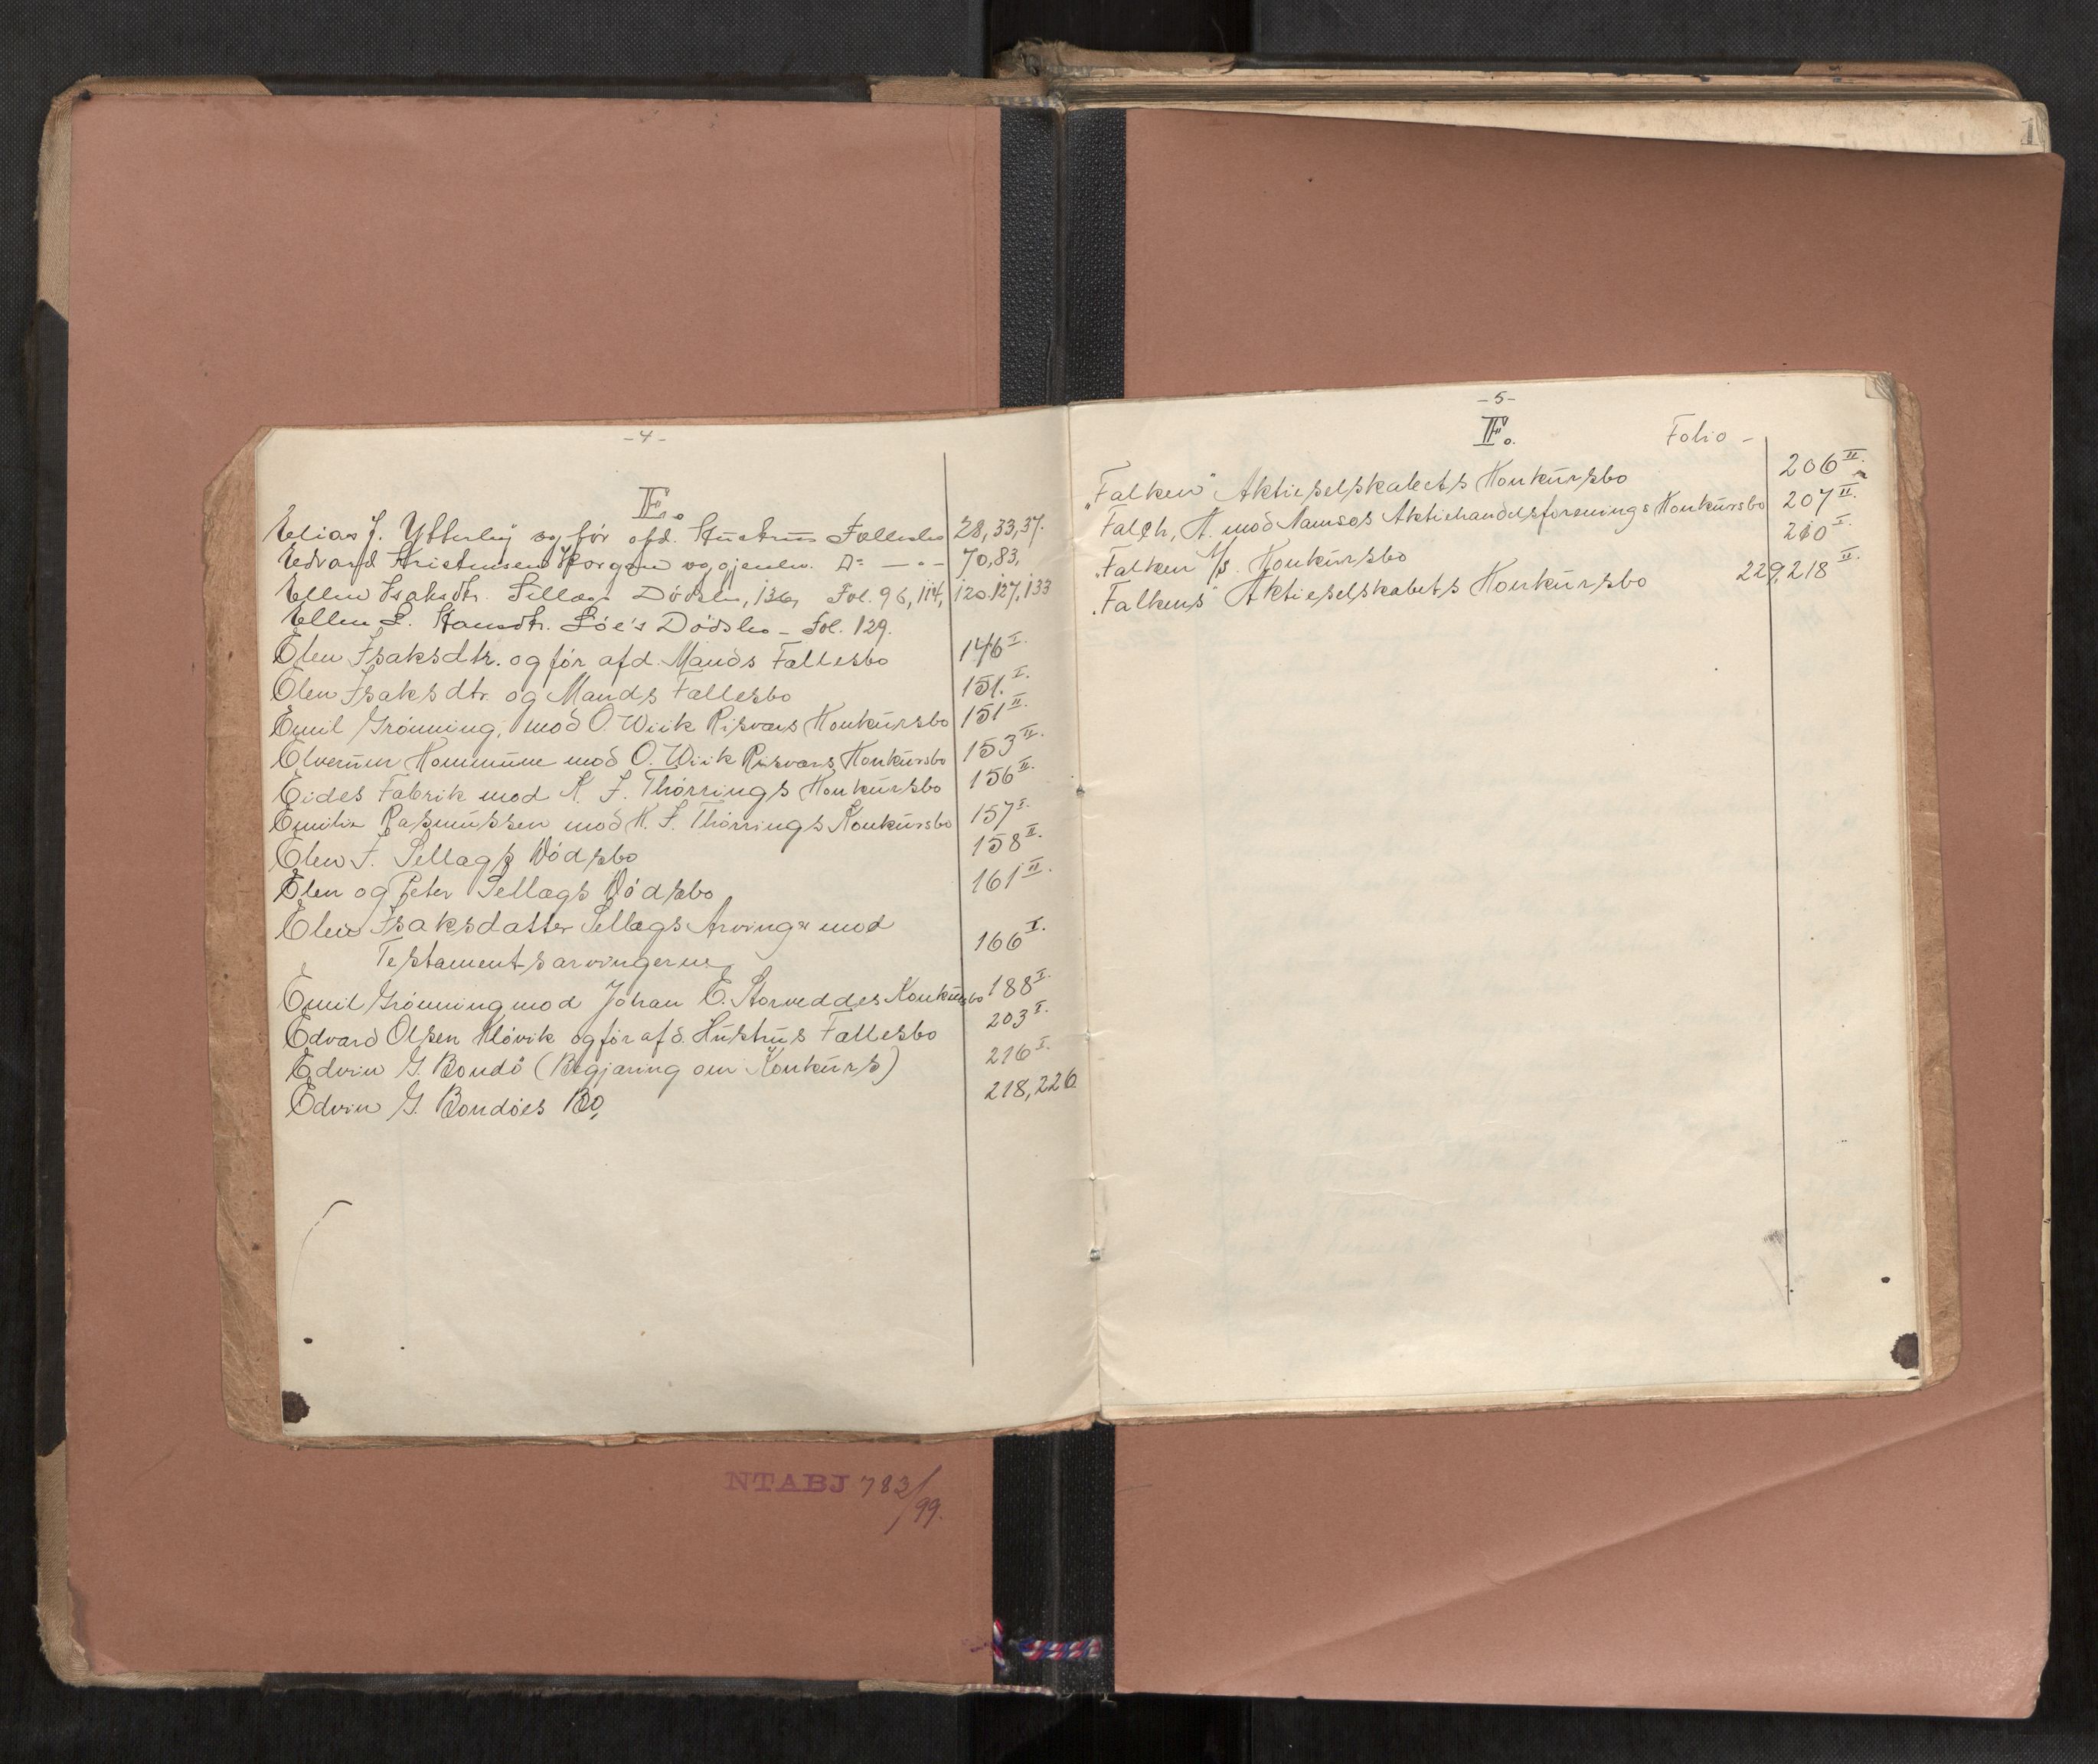 -4-
E.
Elias J. Ytterby og for afd. Hustrus Fællesbo 28, 33, 37.
Edvard Kristensen og gjenlev. Do — " — 70, 83,
Ellen Isaksdtr. Sellægs Dødsbo, 136, Fol. 96, 114, 120. 127, 133
Ellen L. Hansdtr. Löe's Dödsbo - Fol. 129.
Elen Isaksdtr. og för afd. Mands Fællesbo 146 I.
Elen Isaksdtr. og Mands Fællesbo 151. I.
Emil Grönning, mod O. Wiik Risværs Konkursbo 151 II.
Elverum Kommune mod O. Wiik Risværs Konkursbo 153 II.
Eides Fabrik mod K. F. Thörrings Konkursbo 156 II.
Emilie Rasmussen mod K. F. Thörrings Konkursbo 157 I.
Elen I. Sellægs Dödsbo 158 II.
Elen og Peter Sellægs Dödsbo 161 II.
Elen Isaksdatter Sellægs Arvinger mod
Testamentsarvingerne 166 I.
Emil Grönning mod Johan E. Storveddes Konkursbo 188 I.
Edvard Olsen Klövik og för afd. Hustrus Fællesbo 203 I.
Edvin G. Bondö (Begjæring om Konkurs) 216 I.
Edvin G. Bondöes Bo, 218, 226
-5-
F. Folio -
"Falken" Aktieselskabets Konkursbo 206 II.
Falch, A. mod Namsos Aktiehandelsforenings Konkursbo 207 II.
"Falken" A/S. Konkursbo 210 I.
"Falkens" Aktieselskabets Konkursbo 229, 218 II.
NTABJ 783/99.